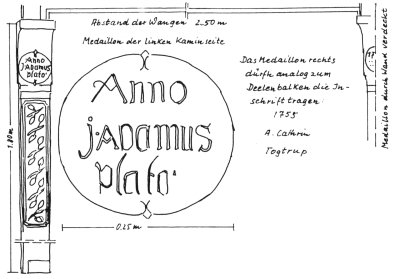 Abstand der Wangen 2.50 m
Medaillon der linken Kaminseite
Anno
J. ADAMUS
Plato
Anno
J. ADAMUS
Plato
Das Medaillon rechts
dürfte analog zum
Deelenbalken die In-
schrift tragen
1755
A. Cathrin
Togtrup
17
Medaillon durch Wand verdeckt
1.80 m
0.25 m